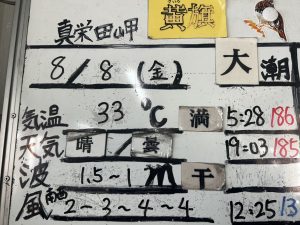 真栄田岬 黄旗
8/8(金) 大潮
気温 33℃ 満 5:28 186
天気 晴/曇 19:03 185
波 1.5~1m 干
風 南西 2~3~4~4 12:25/13